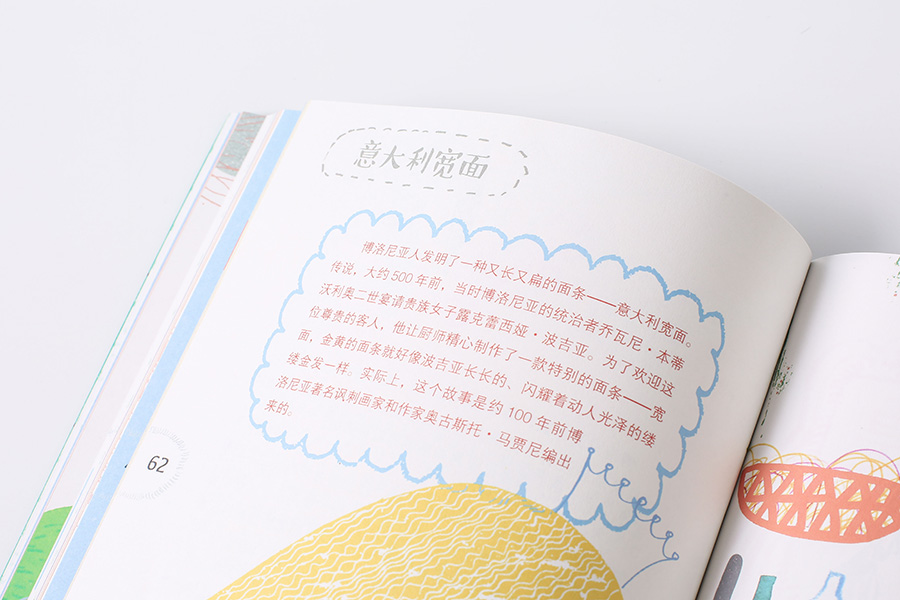 意大利宽面
博洛尼亚人发明了一种又长又扁的面条——意大利宽面。
传说，大约500年前，当时博洛尼亚的统治者乔瓦尼·本蒂
沃利奥二世宴请贵族女子露克蕾西娅·波吉亚。为了欢迎这
位尊贵的客人，他让厨师精心制作了一款特别的面条——宽
面，金黄的面条就好像波吉亚长长的、闪耀着动人光泽的缕
缕金发一样。实际上，这个故事是约100年前博
洛尼亚著名讽刺画家和作家奥古斯托·马贾尼编出
来的。
62